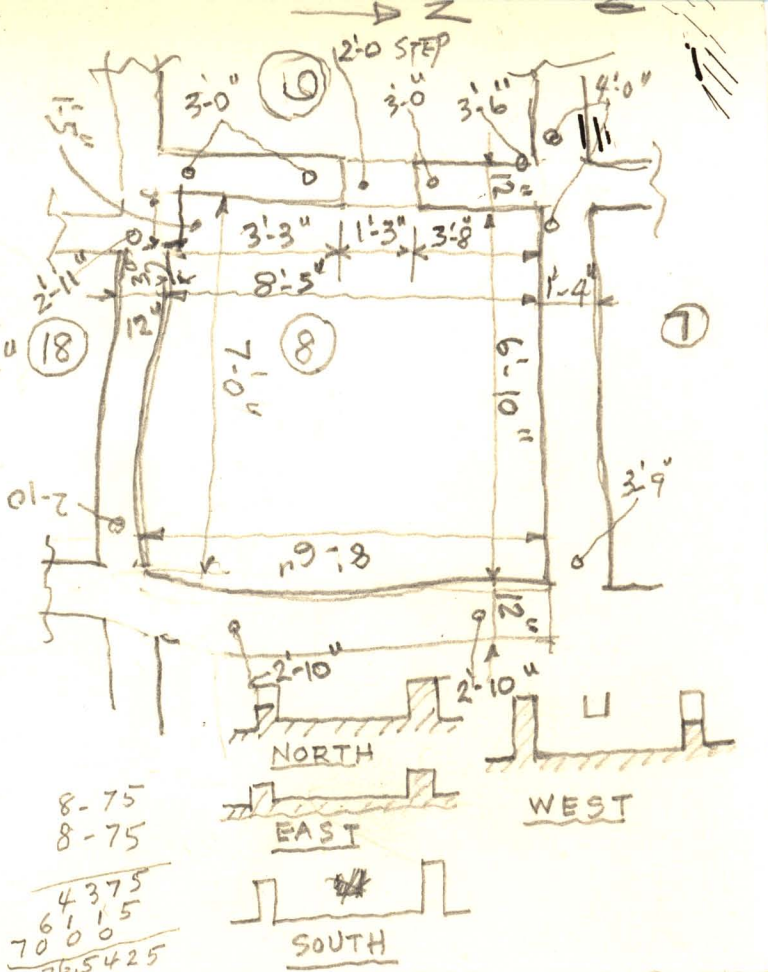 Z
2'-0 STEP
6
3'-0"
3'-0"
3'-6"
4'-0"
1'-5"
12"
3'-3"
1'-3"
3'-8"
2'-11"
8'-5"
1'-4"
12"
18
8
7
7'-0"
6'-10"
3'-9"
2-10
8'-6"
12"
2'-10"
2'-10"
NORTH
WEST
EAST
SOUTH
8-75
8-75
4375
6115
7000
765425